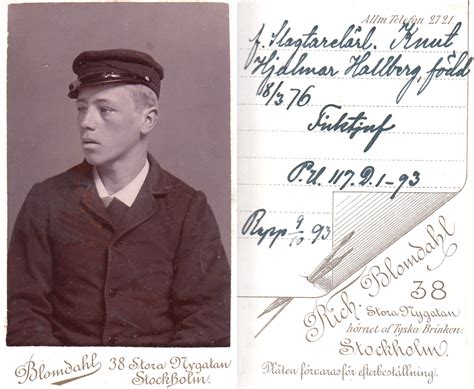 Blomdahl 38 Stora Nygatan
Stockholm.
Allm. Telefon 2721.
f. Slagtarelärl. Knut
Hjalmar Hallberg, född
8/3 76
Ficktjuf
P.U. 117. D. 1-93
Rapp 9/10 93
Rich. Blomdahl
38
Stora Nygatan
hörnet af Tyska Brinken
Stockholm.
Plåten förvaras för efterbeställning.